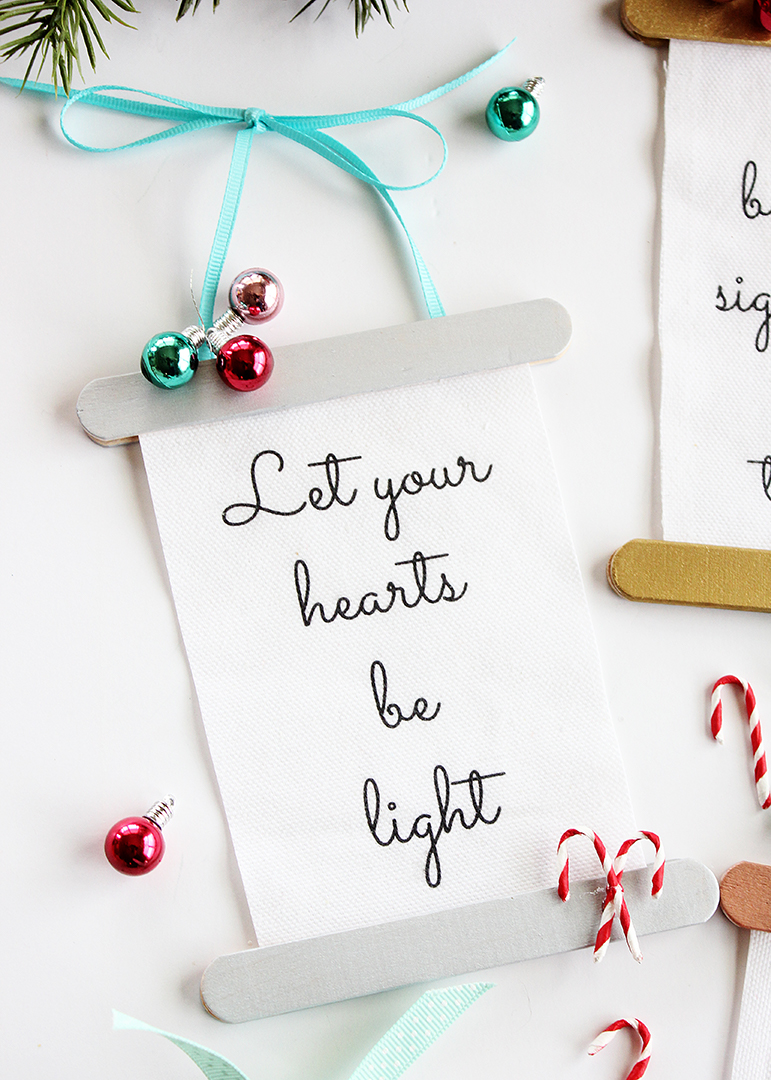 Let your
hearts
be
light